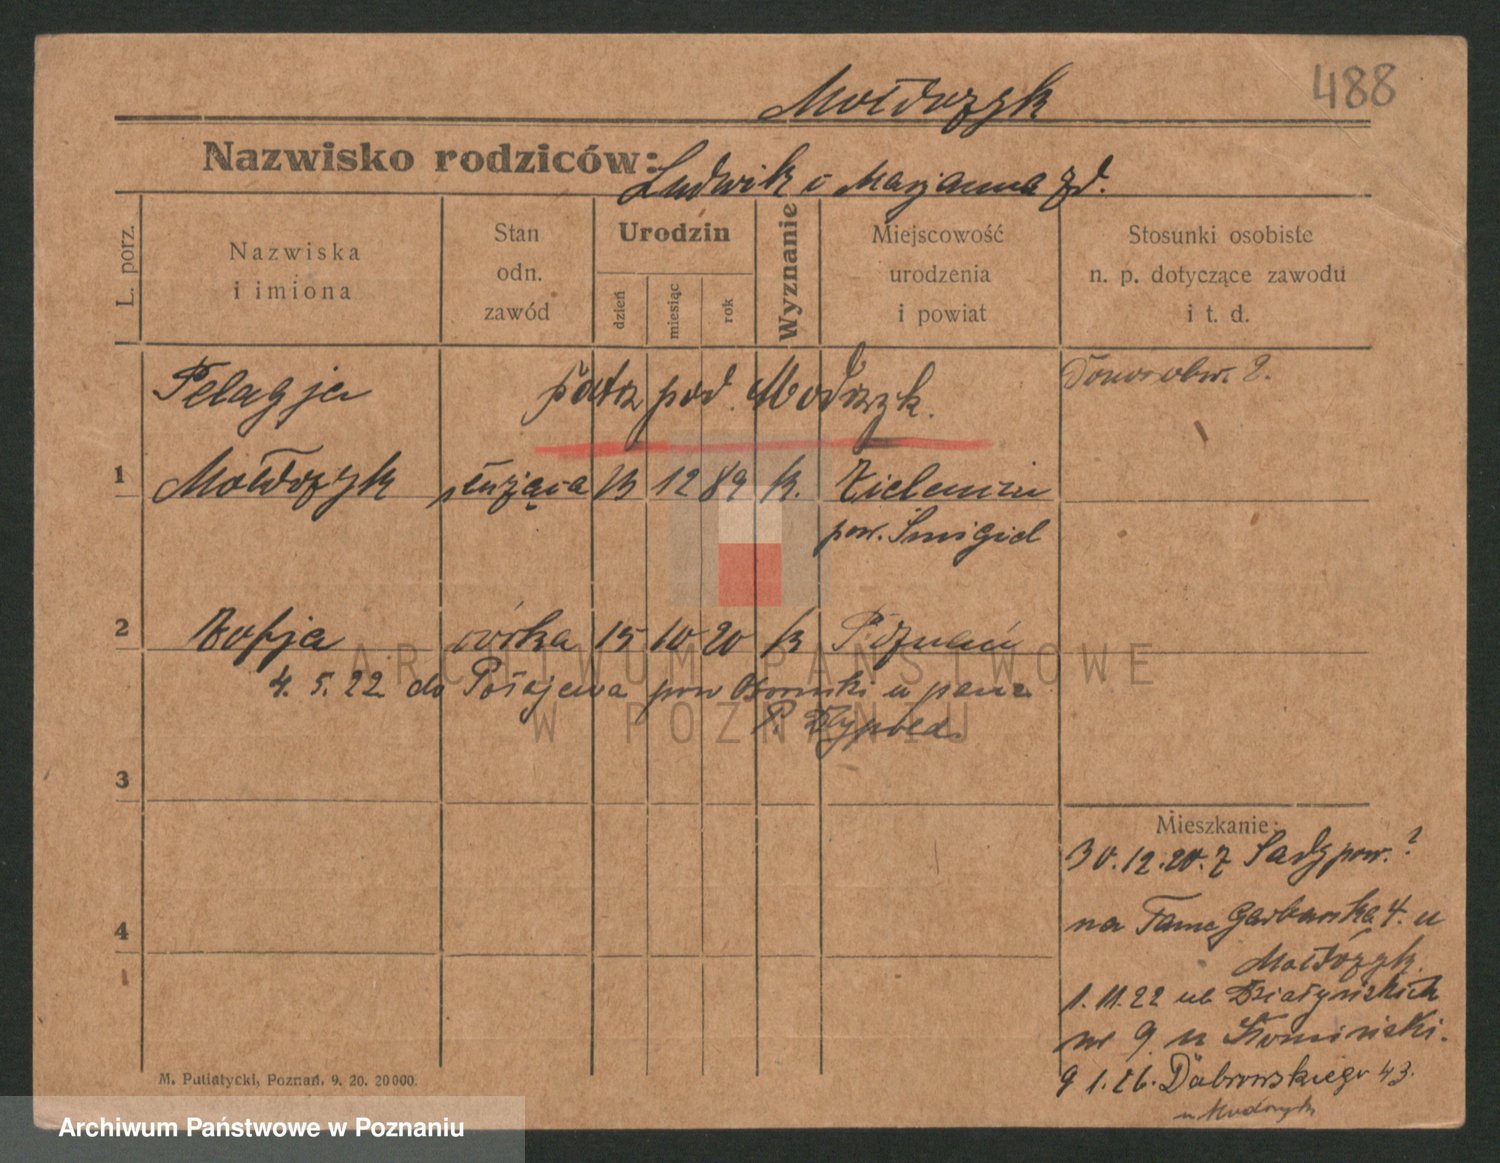 488
Mołdrzyk
Nazwisko rodziców: Ludwik i Marjanna zd.
L. porz.
Nazwiska
i imiona
Stan
odn.
zawód
Urodzin
dzień
miesiąc
rok
Wyznanie
Miejscowość
urodzenia
i powiat
Stosunki osobiste
n. p. dotyczące zawodu
i t. d.
Pelagja patrz pod. Modrzyk.
1 Mołdrzyk służąca 13 12 89 k.
pow. Śmigiel
2 Zofja córka 15 10 20 k Poznań
4. 5. 22 do pow u pana
P.
3
4
Mieszkanie:
30.12.20. z Sady pow. ?
na Garbarska 4. u
Mołdrzyk
1. 11. 22 ul. Działyńskich
nr 9 u Słomiński.
9 1. 26. Dąbrowskiego 43.
u Modrzyk
M. Putiatycki, Poznań, 9. 20. 20000.
ARCHIWUM PAŃSTWOWE
W POZNANIU
Archiwum Państwowe w Poznaniu